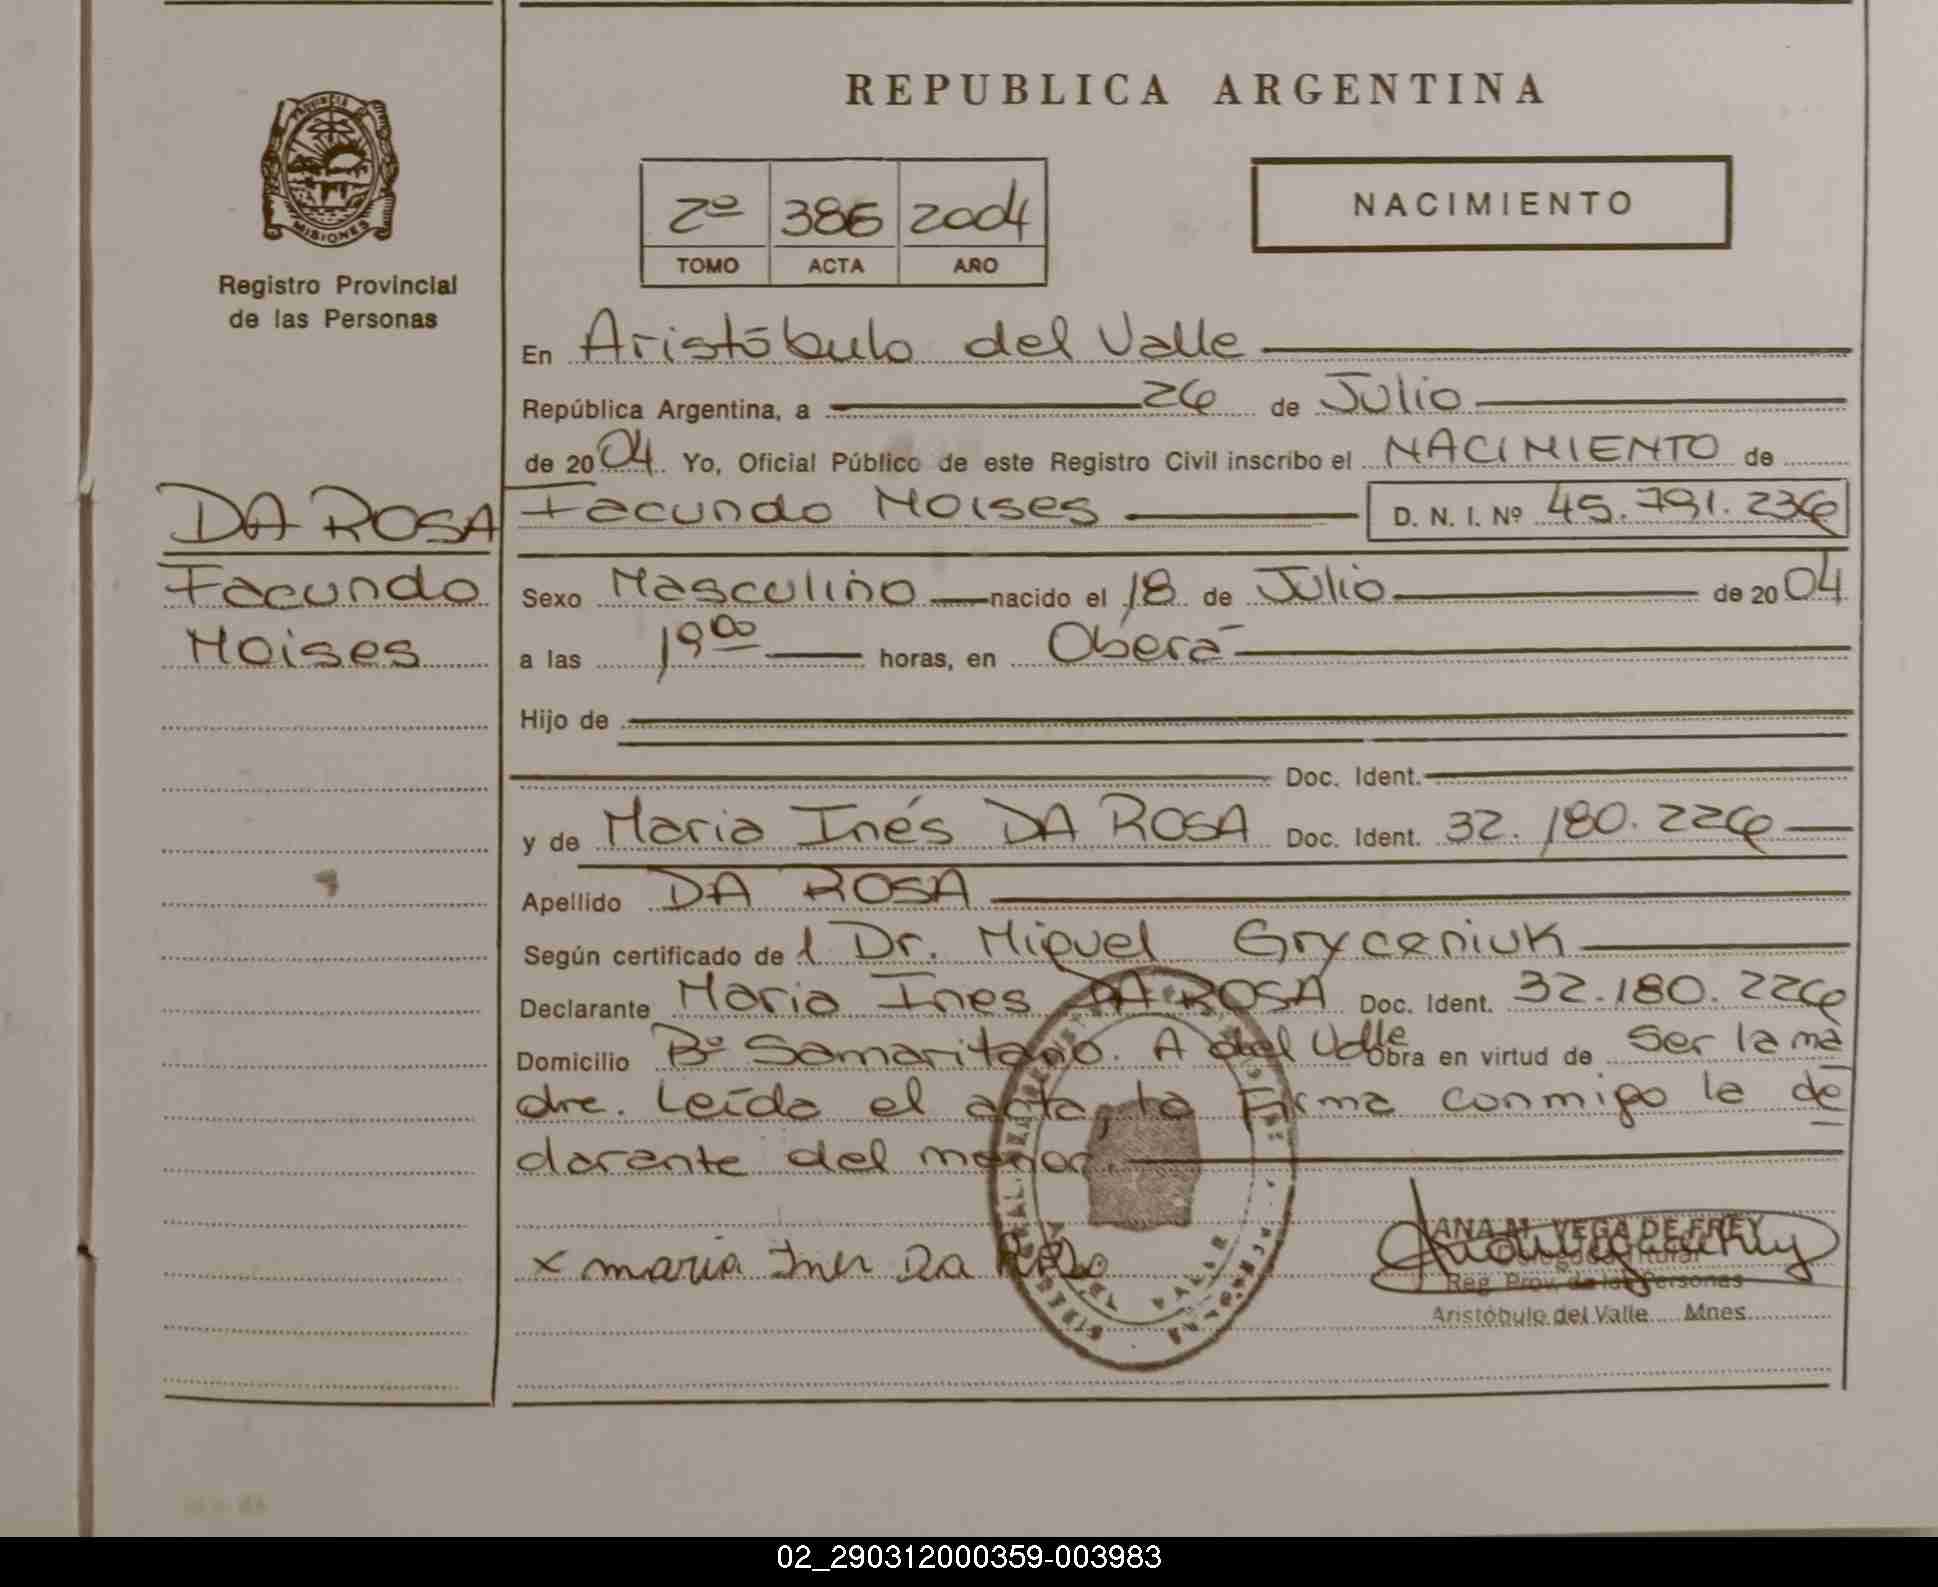 REPUBLICA ARGENTINA
PROVINCIA
MISIONES
Registro Provincial
de las Personas
2º 386 2004
TOMO ACTA AÑO
NACIMIENTO
En Aristóbulo del Valle
República Argentina, a 26 de Julio
de 2004. Yo, Oficial Público de este Registro Civil inscribo el NACIMIENTO de
DA ROSA
Facundo
Moises
Facundo Moises D. N. I. Nº 45.791.236
Sexo Masculino nacido el 18 de Julio de 2004
a las 19 00 horas, en Oberá
Hijo de
Doc. Ident.
y de Maria Inés DA ROSA Doc. Ident. 32.180.226
Apellido DA ROSA
Según certificado de l Dr. Miguel Gryceniuk
Declarante Maria Ines DA ROSA Doc. Ident. 32.180.226
Domicilio Bº Samaritano. A del Valle Obra en virtud de ser la ma
dre. Leída el acta, la firma conmigo la de
clarante del menor.
x maria Ines Da Rosa
ANA M. VEGA DE FREY
Reg. Prov. de las Personas
Aristóbulo del Valle Mnes
02_290312000359-003983